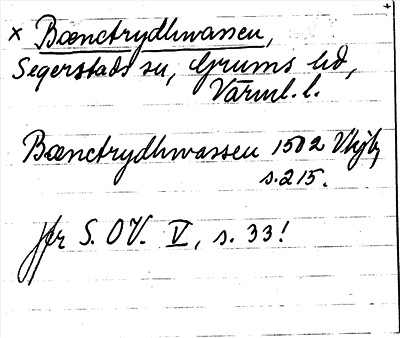 × Bænctrydhwassen,
Segerstads sn, Grums hd,
Värml. l.
Bænctrydhwassen 1502 Vkyb
s. 215.
Jfr S. OV. V, s. 33!